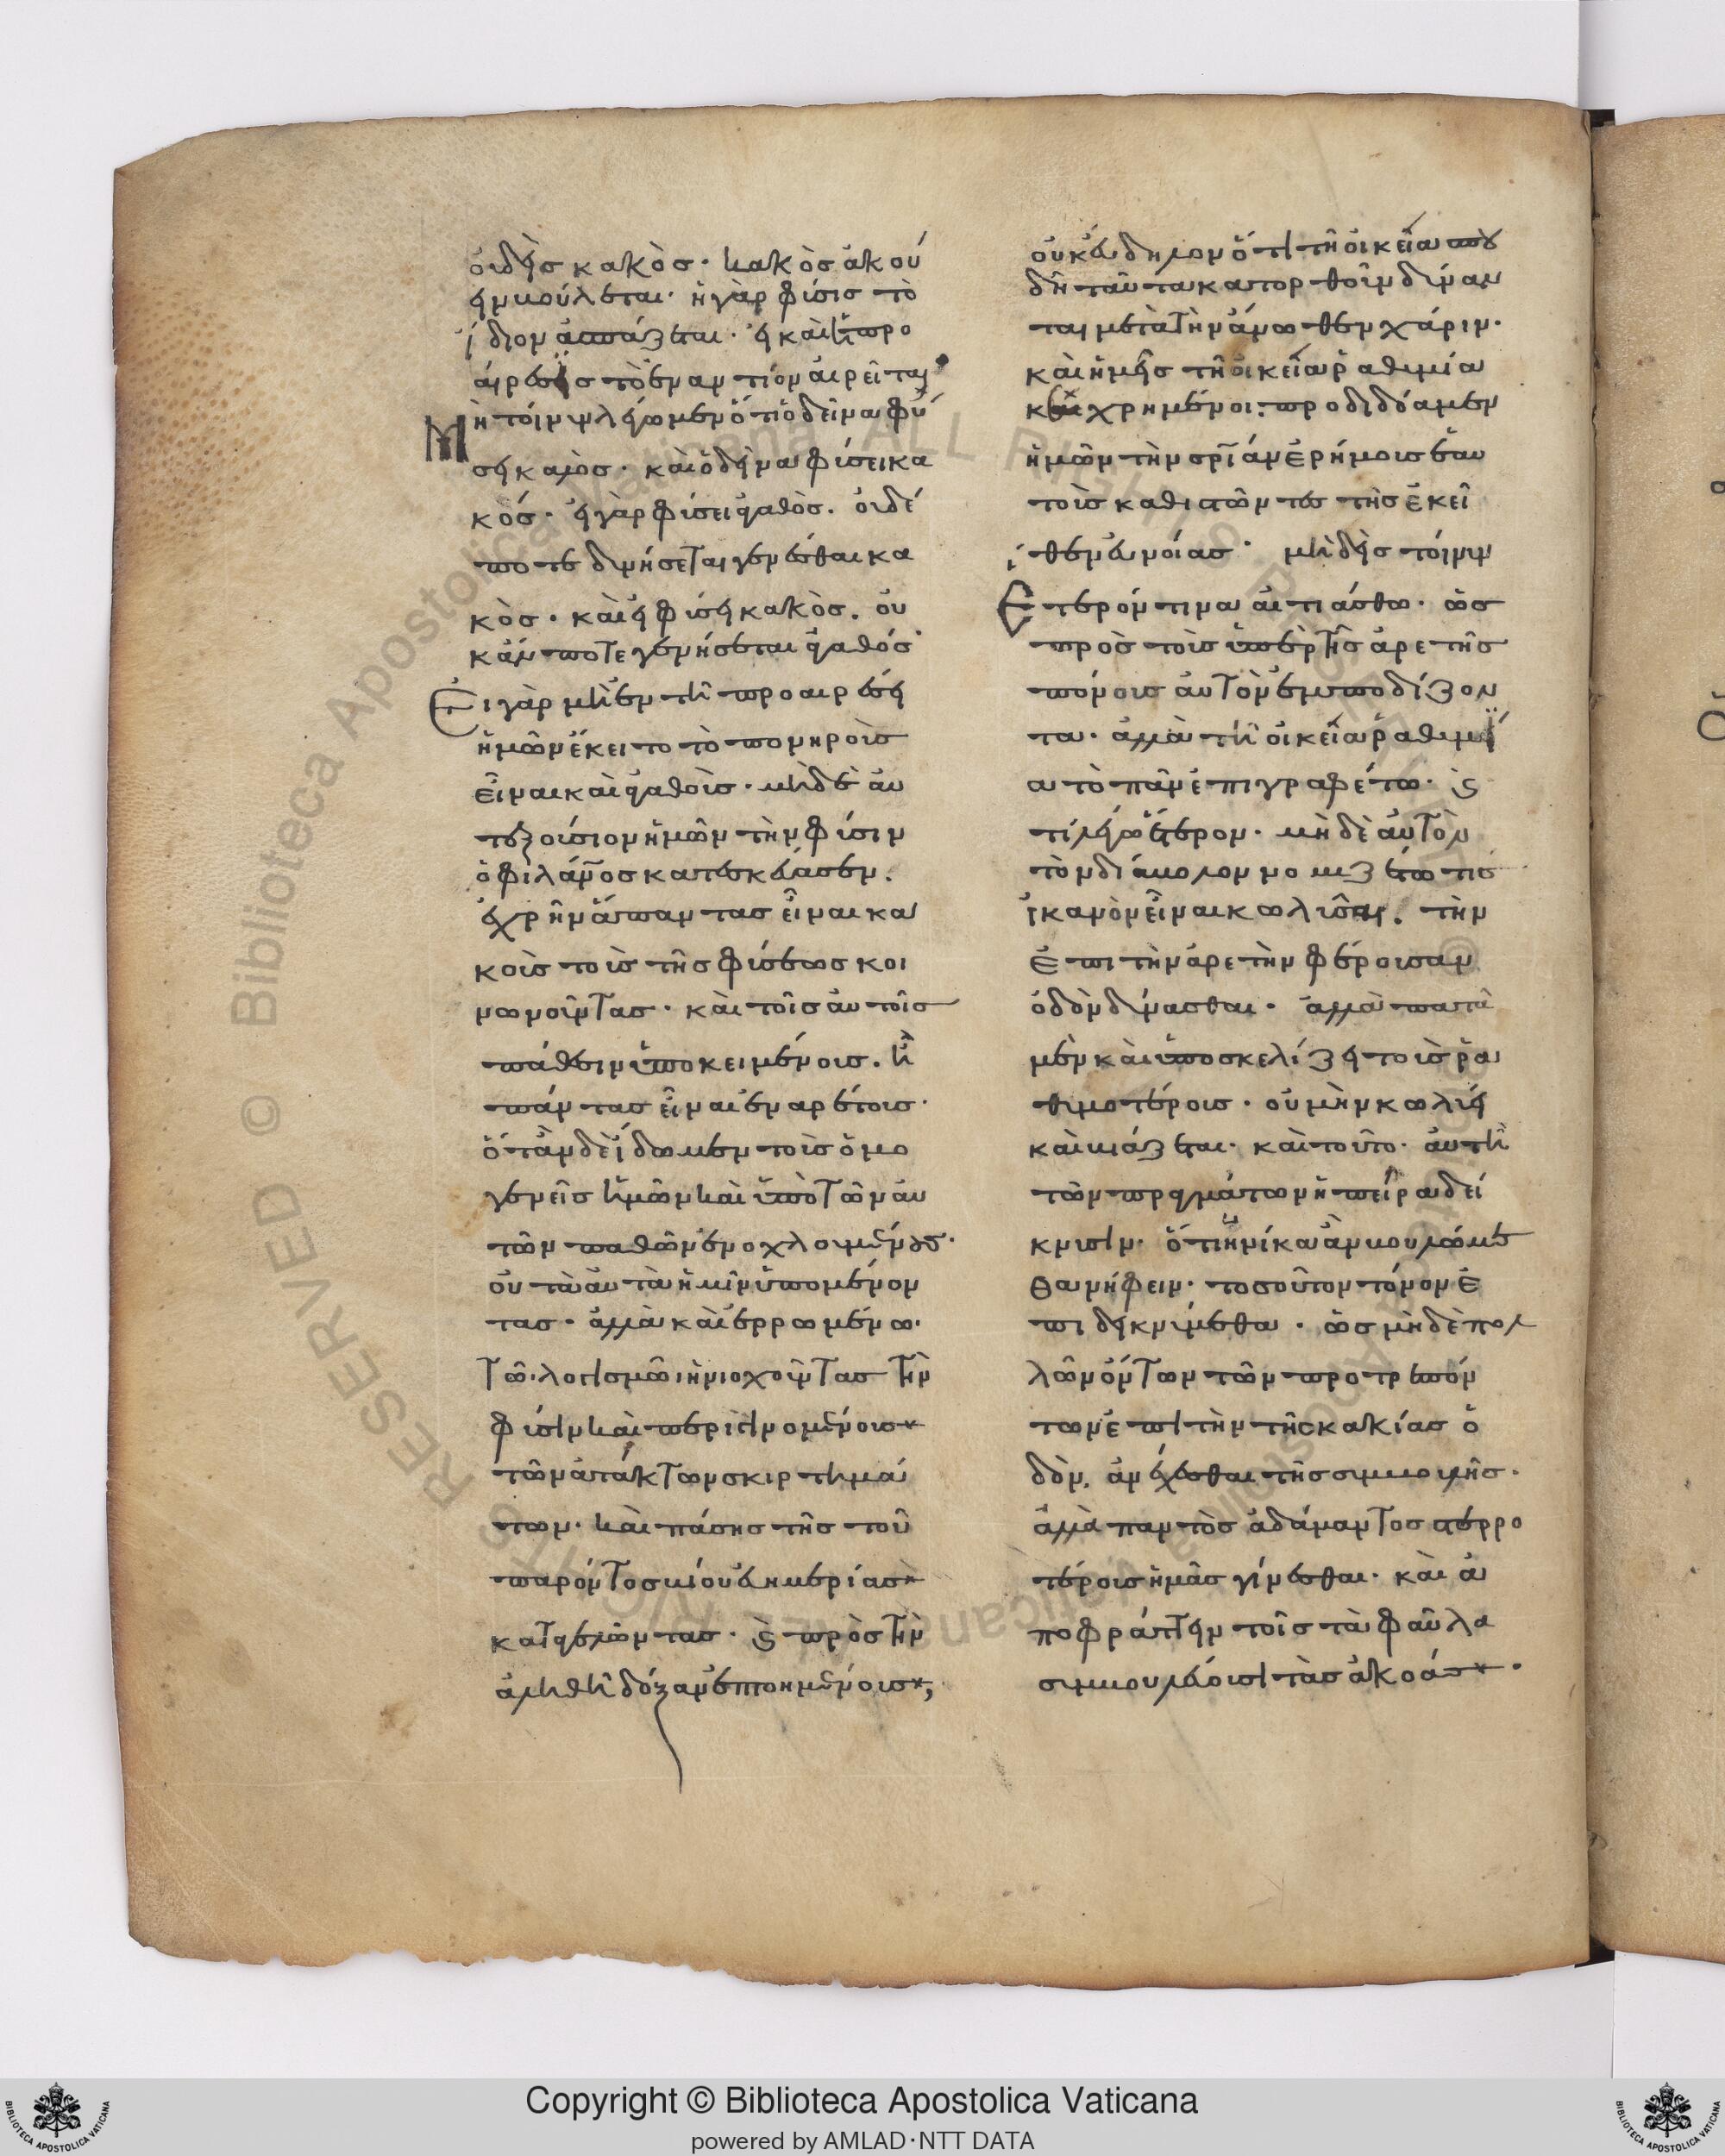 οὐδεὶς κακὸς· κακὸς ἀκού
ειν βούλεται· ἡ γὰρ φύσις τὸ
ἴδιον ἀσπάζεται· εἰ καὶ ἡ προ
αίρεσις τὸ ἐναντίον αἱρεῖται·
Μὴ τοίνυν λέγωμεν ὅτι ὁ δεῖνα φύ
σει καλὸς· καὶ ὁ δεῖνα φύσει κα
κός· εἰ γὰρ φύσει ἀγαθὸς· οὐδέ
ποτε δυνήσεται γενέσθαι κα
κὸς· καὶ εἰ φύσει κακὸς· οὐ
κ ἄν ποτε γενήσεται ἀγαθός·
Εἰ γὰρ μὴ ἐν τῆ προαιρέσει
ἡμῶν ἔκειτο τὸ πονηροὺς
εἶναι καὶ ἀγαθοὺς· μηδὲ αὐ
τεξούσιον ἡμῶν τὴν φύσιν
ὁ φιλάνος κατεσκεύασεν·
ἐχρῆν ἅπαντας εἶναι κα
κοὺς τοὺς τῆς φύσεως κοι
νωνοῦντας· καὶ τοῖς αὐτοῖς
πάθεσιν ὑποκειμένους· ἢ
πάντας εἶναι ἐναρέτους·
ὅταν δὲ ἴδωμεν τοὺς ὁμο
γενεῖς ἡμῶν καὶ ὑπὸ τῶν αὐ
τῶν παθῶν ἐνοχλουμένους·
οὐ τὰ αὐτὰ ἡμῖν ὑπομένον
τας· ἀλλὰ καὶ ἐρρωμένω·
τῶ λογισμῶ ἡνιοχοῦντας τὴν
φύσιν καὶ περιγινομένους
τῶν ἀτάκτων σκιρτημά
των· καὶ πάσης τῆς τοῦ
παρόντος βίου εὐημερίας
καταγελῶντας· καὶ πρὸς τὴν
ἀληθῆ δόξαν ἐπτοημένους,
οὐκ εὔδηλον ὅτι τῆ οἰκεία σπου
δῆ ταῦτα κατορθοῦν δύναν
ται μετὰ τὴν ἄνωθεν χάριν·
καὶ ἡμεῖς τῆ οἰκεία ῥαθυμία
κεχρημένοι· προδιδόαμεν
ἡμῶν τὴν σριάν ἐρήμους ἑαυ
τοὺς καθιστῶντες τῆς ἐκεῖ
θεν εὐνοίας· μηδεὶς τοίνυν
Ἕτερόν τινα αἰτιάσθω· ὡς
πρὸς τοὺς ὑπὲρ τῆς ἀρετῆς
πόνους αὐτὸν ἐμποδίζον
τα· ἀλλὰ τῆ οἰκεία ῥαθυμί
α τὸ πᾶν ἐπιγραφέτω· καὶ
τί λέγω ἕτερον· μὴ δὲ αὐτὸν
τὸν διάβολον νομιζέτω τις
ἱκανὸν εἶναι κωλῦσαι· τὴν
ἐπὶ τὴν ἀρετὴν φέρουσαν
ὁδὸν δύνασθαι· ἀλλὰ ἀπατᾶ
μὲν καὶ ὑποσκελίζει τοὺς ῥα
θυμοτέρους· οὐ μὴν κωλύει
καὶ βιάζεται· καὶ τοῦτο· αὐτὴ
τῶν πραγμάτων ἡ πεῖρα δεί
κνυσιν· ὅτι ἡνίκα ἂν βουλώμε
θα νήφειν· τοσοῦτον τόνον ἐ
πιδεικνύμεθα· ὡς μὴ δὲ πολ
λῶν ὄντων τῶν προτρεπόν
των ἐπὶ τὴν τῆς κακίας ὁ
δὸν, ἀνέχεσθαι τῆς συμβουλῆς·
ἀλλὰ παντὸς ἀδάμαντος στερρο
τέρους ἡμᾶς γίνεσθαι· καὶ ἀ
ποφράττειν τοῖς τὰ φαῦλα
συμβουλεύουσι τὰς ἀκοάς·
Copyright © Biblioteca Apostolica Vaticana
powered by AMLAD·NTT DATA